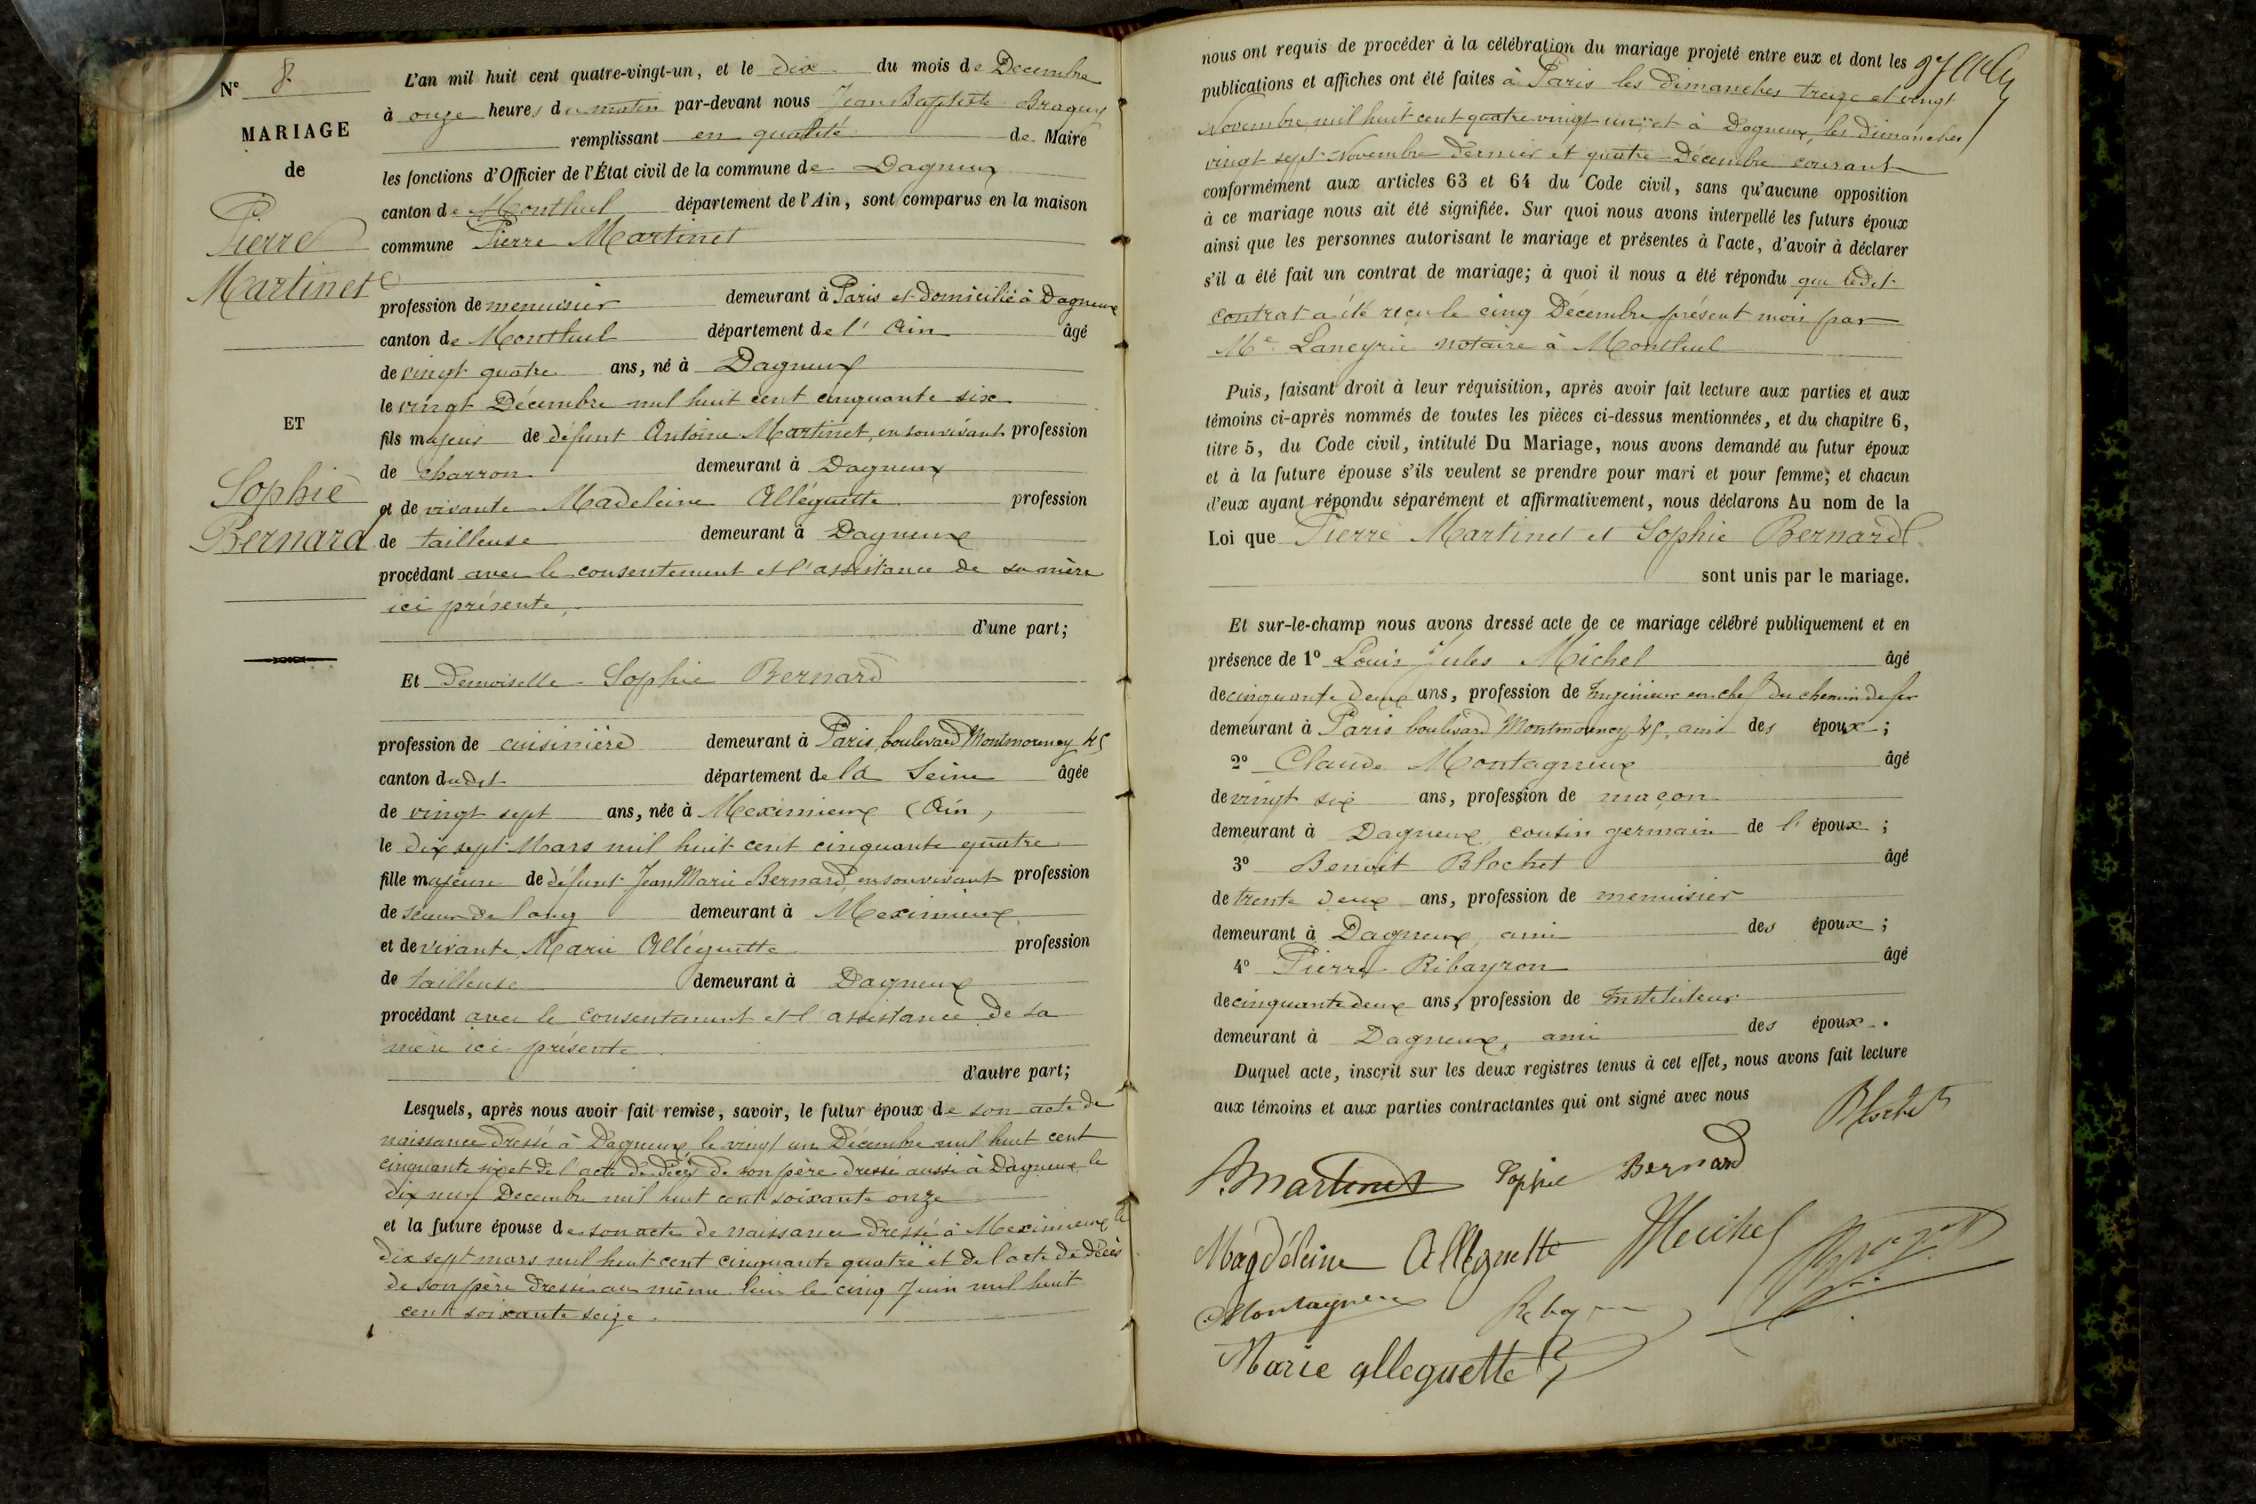 N° 8
MARIAGE
de
Pierre
Martinet
ET
Sophie
Bernard
L'an mil huit cent quatre-vingt-un, et le dix du mois de Decembre
à onze heures du matin par-devant nous Jean Baptiste Braguy
remplissant en qualité de Maire
les fonctions d'Officier de l'État civil de la commune de Dagneux
canton de Montluel département de l'Ain, sont comparus en la maison
commune Pierre Martinet
profession de menuisier demeurant à Paris et domicilié à Dagneux
canton de Montluel département de l'Ain âgé
de vingt quatre ans, né à Dagneux
le vingt Décembre mil huit cent cinquante six
fils majeur de défunt Antoine Martinet, en son vivant profession
de charron demeurant à Dagneux
et de vivante Madeleine Alléguette profession
de tailleuse demeurant à Dagneux
procédant avec le consentement et l'assistance de sa mère
ici présente,
d'une part;
Et Demoiselle Sophie Bernard
profession de cuisinière demeurant à Paris, boulevard Montmorency 45
canton dudit département de la Seine âgée
de vingt sept ans, née à Meximieux (Ain,
le dix sept Mars mil huit cent cinquante quatre
fille majeure de défunt Jean Marie Bernard, en son vivant profession
de scieur de long demeurant à Meximieux
et de vivante Marie Alléguette profession
de tailleuse demeurant à Dagneux
procédant avec le consentement et l'assistance de sa
mère ici présente.
d'autre part;
Lesquels, après nous avoir fait remise, savoir, le futur époux de son acte de
naissance dressé à Dagneux le vingt un Décembre mil huit cent
cinquante six et de l'acte de décès de son père dressé aussi à Dagneux le
dix neuf Decembre mil huit cent soixante onze
et la future épouse de son acte de naissance dressé à Meximieux le
dix sept mars mil huit cent cinquante quatre et de l'acte de décès
de son père dressé au même lieu le cinq Juin mil huit
cent soixante seize.
nous ont requis de procéder à la célébration du mariage projeté entre eux et dont les
publications et affiches ont été faites à Paris les dimanches treize et vingt
Novembre mil huit cent quatre vingt un, et à Dagneux les dimanches
vingt sept Novembre dernier et quatre Décembre courant
conformément aux articles 63 et 64 du Code civil, sans qu'aucune opposition
à ce mariage nous ait été signifiée. Sur quoi nous avons interpellé les futurs époux
ainsi que les personnes autorisant le mariage et présentes à l'acte, d'avoir à déclarer
s'il a été fait un contrat de mariage; à quoi il nous a été répondu que ledit
contrat a été reçu le cinq Décembre présent mois par
Me Laneyrie notaire à Montluel
Puis, faisant droit à leur réquisition, après avoir fait lecture aux parties et aux
témoins ci-après nommés de toutes les pièces ci-dessus mentionnées, et du chapitre 6,
titre 5, du Code civil, intitulé Du Mariage, nous avons demandé au futur époux
et à la future épouse s'ils veulent se prendre pour mari et pour femme; et chacun
d'eux ayant répondu séparément et affirmativement, nous déclarons Au nom de la
Loi que Pierre Martinet et Sophie Bernard
sont unis par le mariage.
Et sur-le-champ nous avons dressé acte de ce mariage célébré publiquement et en
présence de 1° Louis Jules Michel âgé
de cinquante deux ans, profession de Ingénieur en chef du chemin de fer
demeurant à Paris boulevard Montmorency 45, ami des époux;
2° Claude Montagneux âgé
de vingt six ans, profession de maçon
demeurant à Dagneux cousin germain de l'époux;
3° Benoit Blochet âgé
de trente deux ans, profession de menuisier
demeurant à Dagneux, ami des époux;
4° Pierre Ribayron âgé
de cinquante deux ans, profession de Instituteur
demeurant à Dagneux, ami des époux.
Duquel acte, inscrit sur les deux registres tenus à cet effet, nous avons fait lecture
aux témoins et aux parties contractantes qui ont signé avec nous
Blochet
P. Martinet Sophie Bernard
Magdéleine Alléguette Michel
Montagneux
Marie alleguette